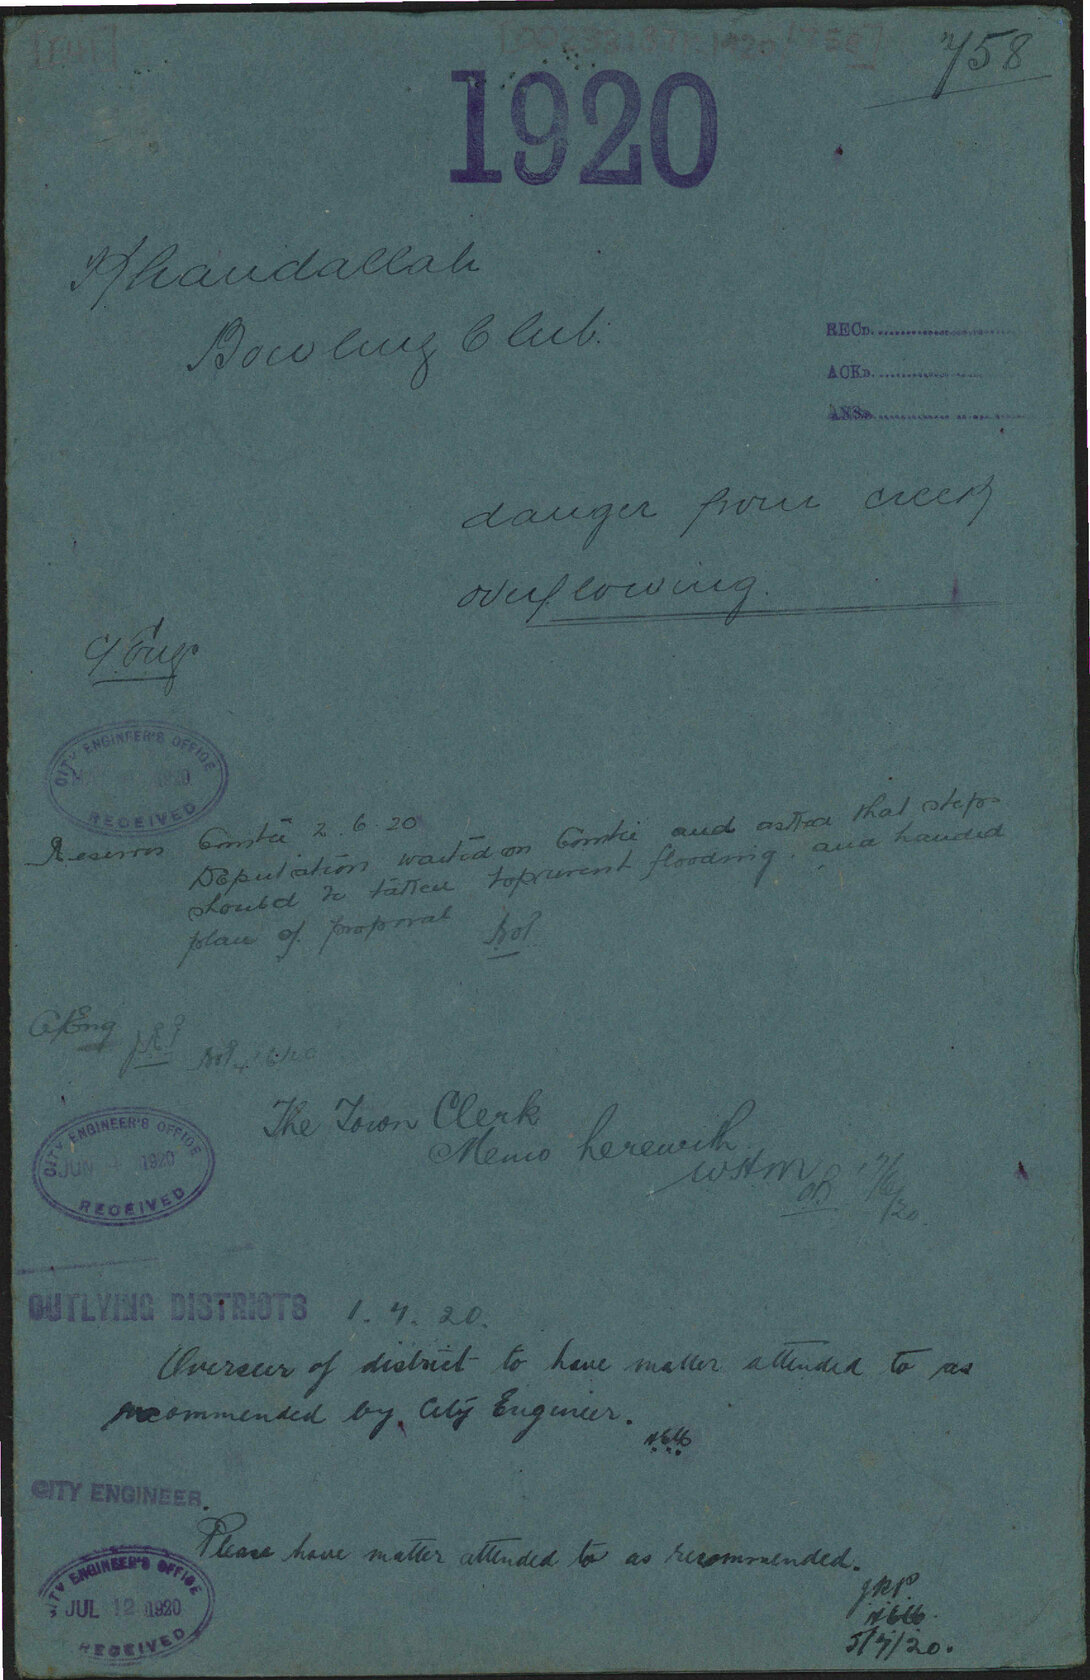 758
1920
Khandallah
Bowling Club.
RECD.
ACKD.
ANSD.
danger from creek
overflowing.
C/Eng
CITY ENGINEER'S OFFICE
1920
RECEIVED
Reserves Comtee 2.6.20
Deputation waited on Comtee and asked that steps
should be taken to prevent flooding. and handed
plan of proposal
C/Eng
The Town Clerk
Memo herewith
WHM
17/6/20
CITY ENGINEER'S OFFICE
JUN 4 1920
RECEIVED
OUTLYING DISTRICTS 1.7.20.
Overseer of district to have matter attended to as
recommended by City Engineer.
CITY ENGINEER.
Please have matter attended to as recommended.
JRP
5/7/20.
CITY ENGINEER'S OFFICE
JUL 12 1920
RECEIVED